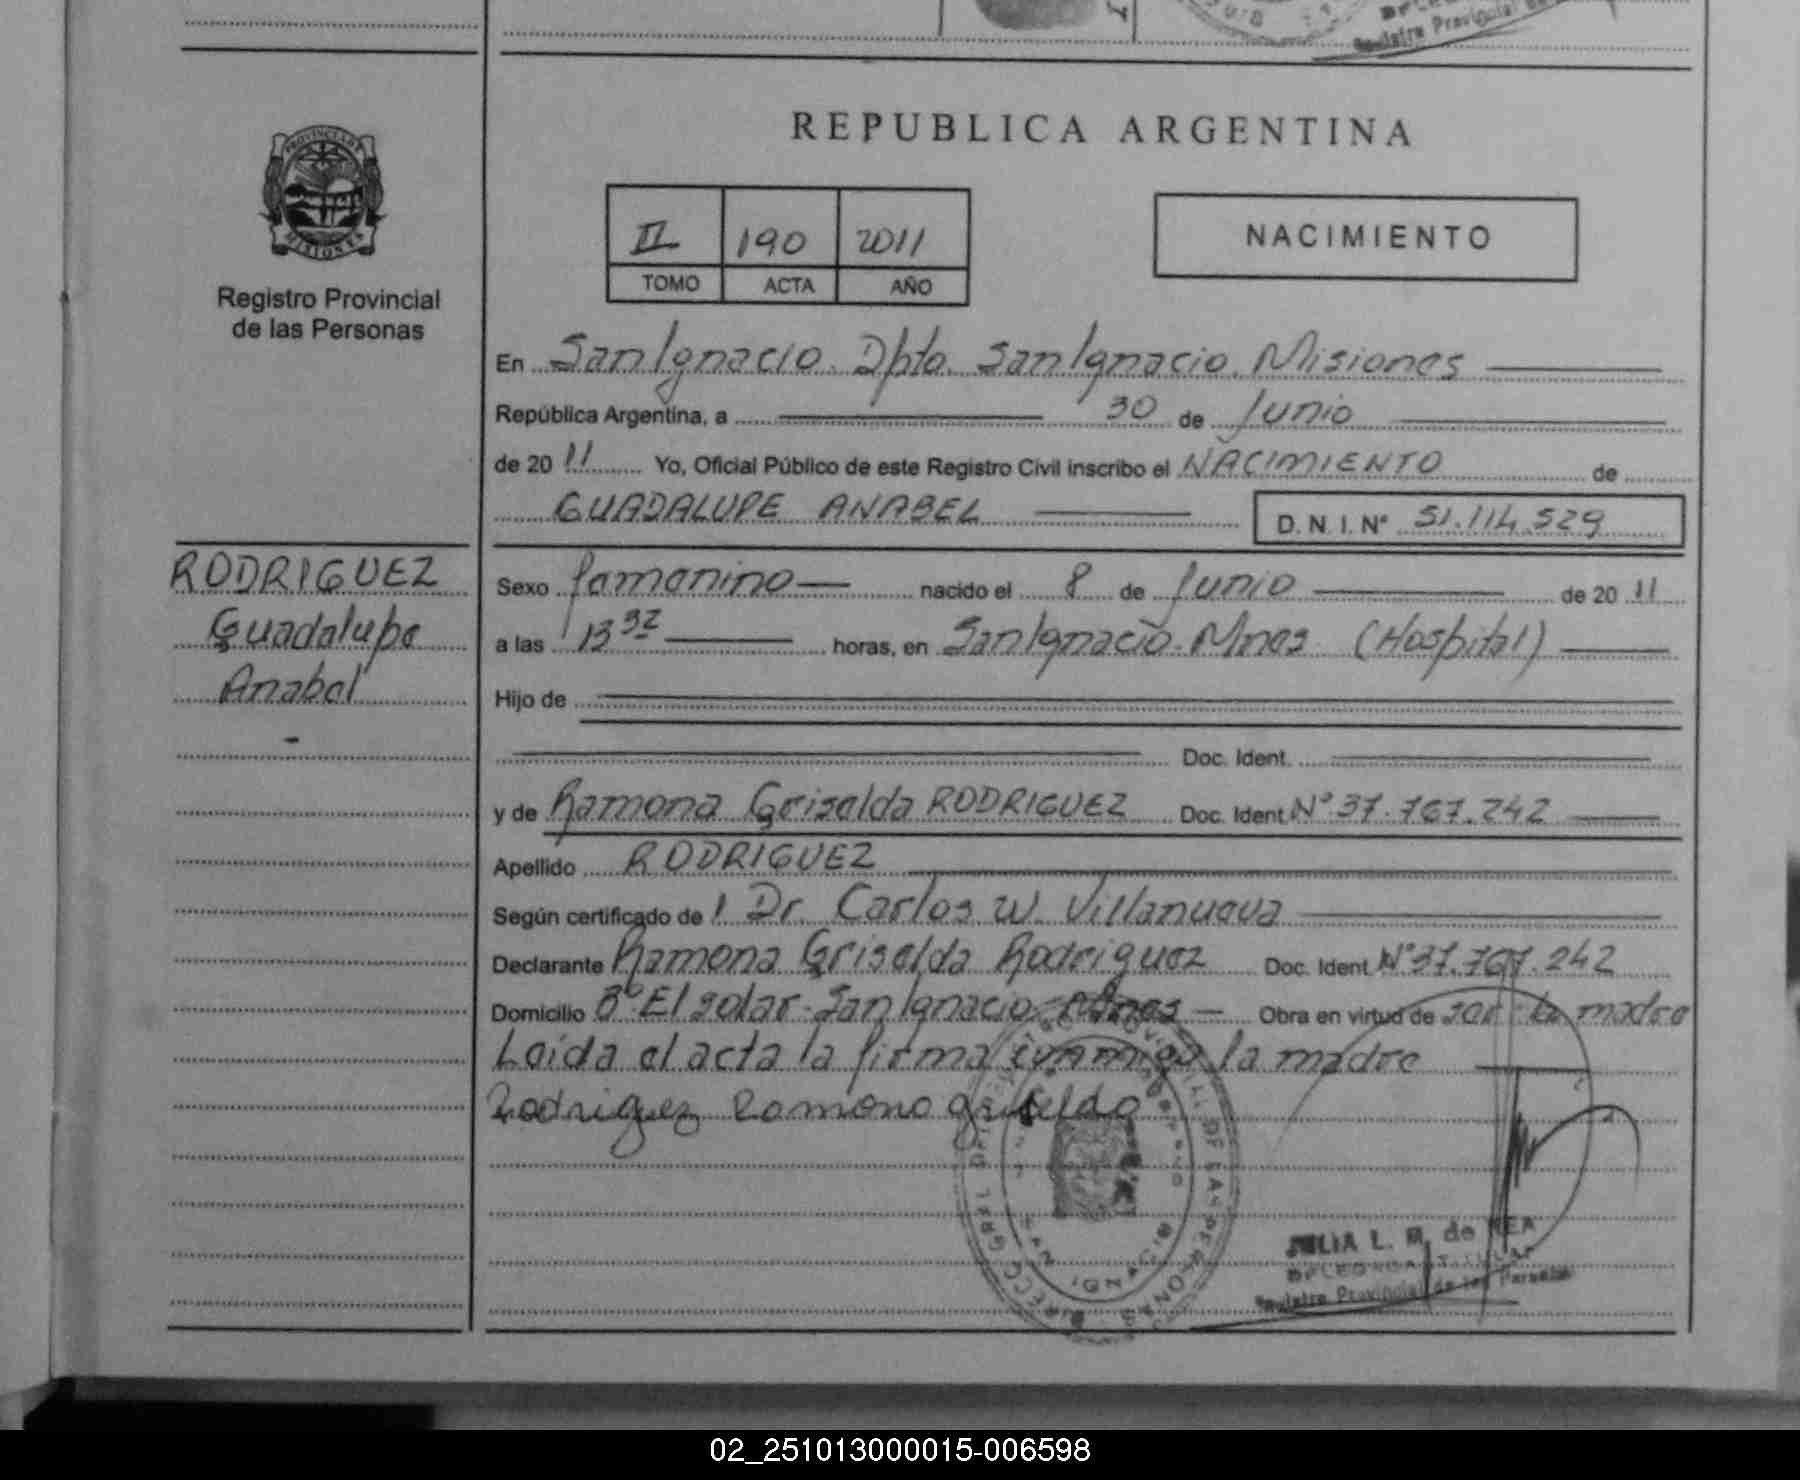 REPUBLICA ARGENTINA
PROVINCIA DE
MISIONES
Registro Provincial
de las Personas
II 190 2011
TOMO ACTA AÑO
NACIMIENTO
En San Ignacio. Dpto. San Ignacio. Misiones
República Argentina, a 30 de Junio
de 20 11 Yo, Oficial Público de este Registro Civil inscribo el NACIMIENTO de
GUADALUPE ANABEL D. N. I. Nº 51.114.529
RODRIGUEZ
Guadalupe
Anabel
Sexo femenino nacido el 8 de Junio de 20 11
a las 13 32 horas, en San Ignacio. Mnes (Hospital)
Hijo de
Doc. Ident.
y de Ramona Griselda RODRIGUEZ Doc. Ident. Nº 37.767.242
Apellido RODRIGUEZ
Según certificado de l Dr. Carlos W. Villanueva
Declarante Ramona Griselda Rodriguez Doc. Ident. Nº 37.767.242
Domicilio Bº El solar - San Ignacio Mnes - Obra en virtud de ser la madre
Leída el acta la firma conmigo la madre
Rodriguez Ramona griselda
JULIA L. M. de REA
DELEGADA TITULAR
Registro Provincial de las Personas
02_251013000015-006598